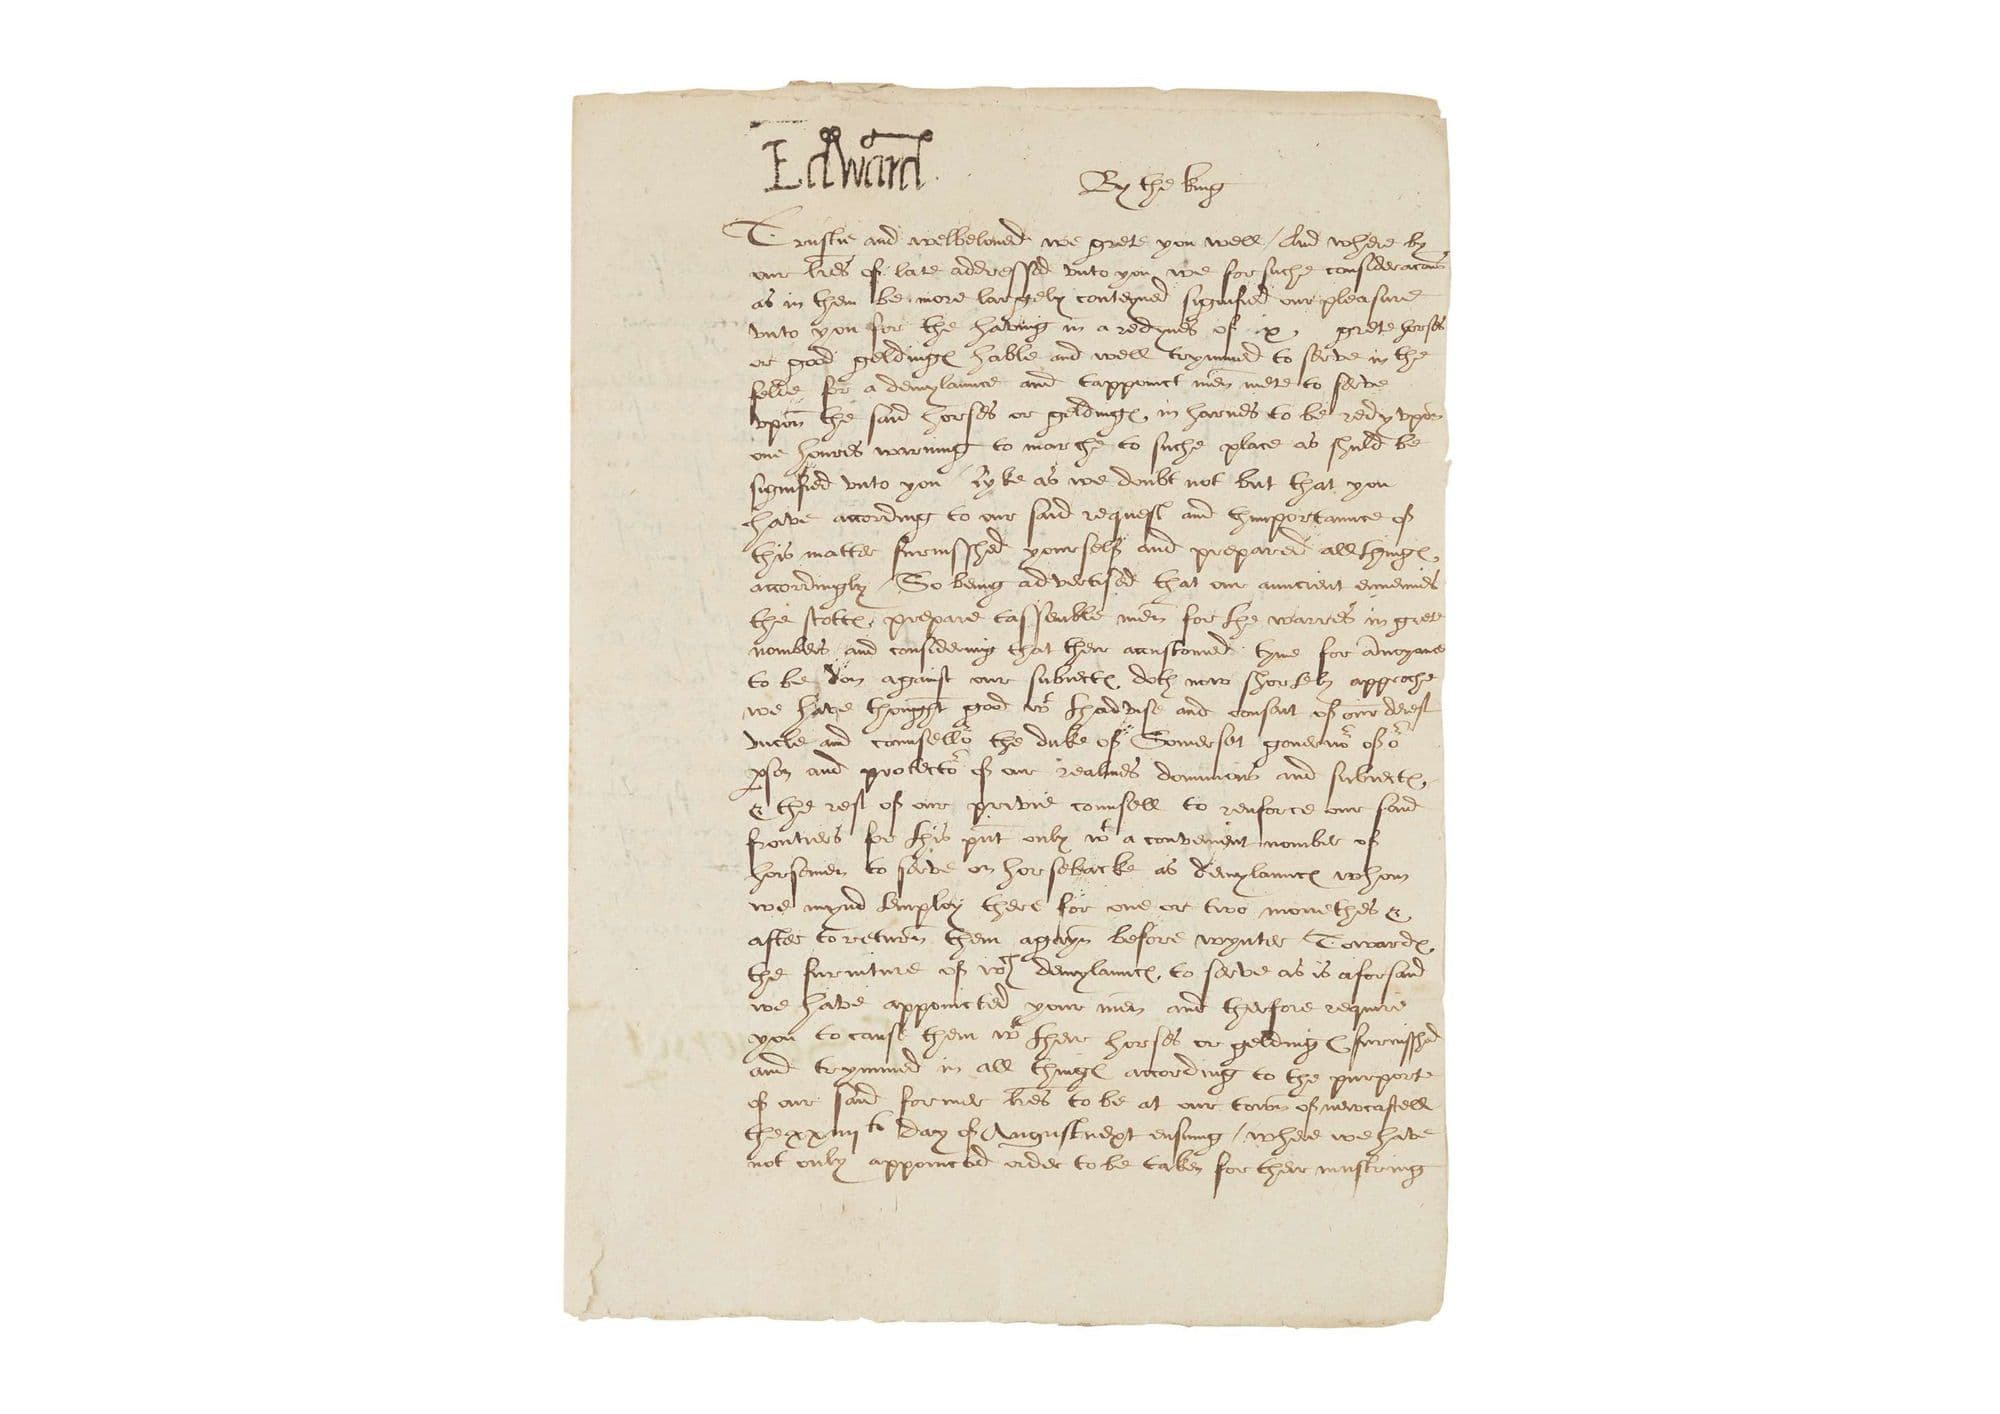 Edward
By the king
Trustie and welbeloued we grete you well / And where by
our lres of late addressed vnto you we for suche consideracons
as in them be more largely conteyned signified our pleasure
vnto you for the having in a redynes of ix. grete horses
or good geldinges hable and well trymmed to serve in the
felde for a demylaunce and tappoinct men mete to serve
vpon the said horses or geldinges, in harnes to be redy vpon
one houres warning to marche to suche place as shuld be
signified vnto you / Lyke as we doubt not but that you
have according to our said request and thimportaunce of
this matter furnisshed yourself and prepared all thinges
accordingly / So being advertised that our auncient ennemies
the scottes, prepare tassemble men for the warres in grete
nombers and considering that their accustomed tyme for anoyance
to be don against our subiectes, doth now shortely approche
we have thought good wt thadvise and consent of our derest
vncle and counsellor the duke of Somerset gouernor of or
pson and protector of our realmes dominions and subiectes,
& the rest of our privie counsell to renforce our said
frontiers for this pnt only wt a convenient nomber of
horsemen to serve on horsebacke as demylaunces whom
we mynd temploy there for one or two monethes &
after to return them agayn before wynter Towardes
the furniture of wch demylaunces, to serve as is aforsaid
we have appoincted your men and therfore require
you to cause them wt their horses or geldinges furnisshed
and trymmed in all thinges according to the purporte
of our said former lres to be at our town of newcastell
the xxiiiito day of August next ensuing / where we have
not only appoincted order to be taken for their mustring